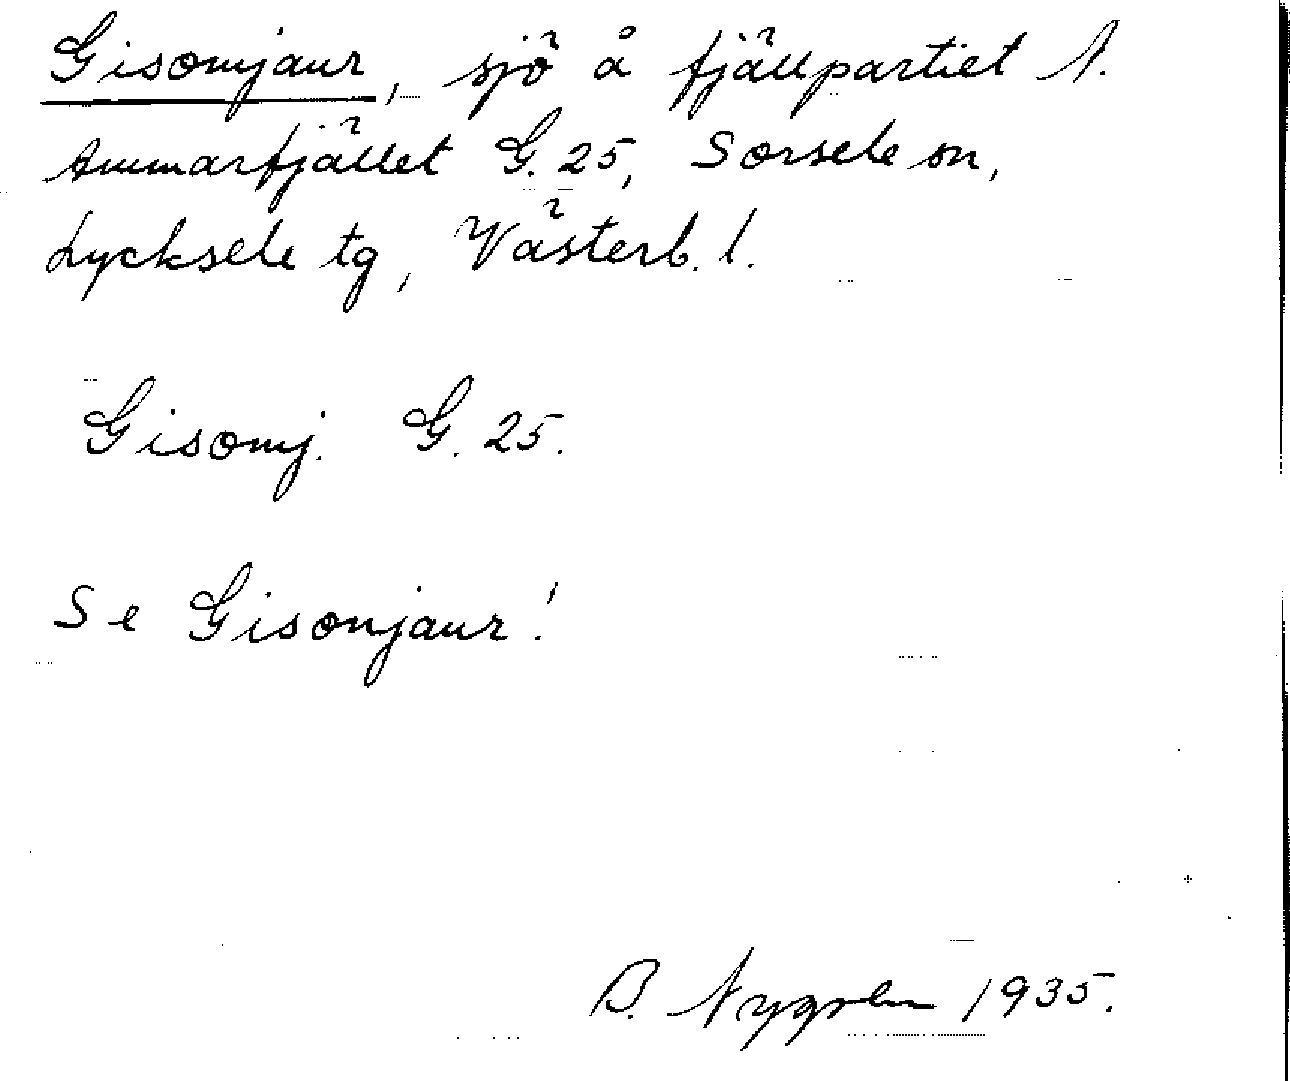 Gisomjaur, sjö å fjällpartiet N.
Ammarfjället G. 25, Sorsele sn,
Lycksele tg, Västerb. l.
Gisomj. G. 25.
Se Gisonjaur!
B. Nygren 1935.